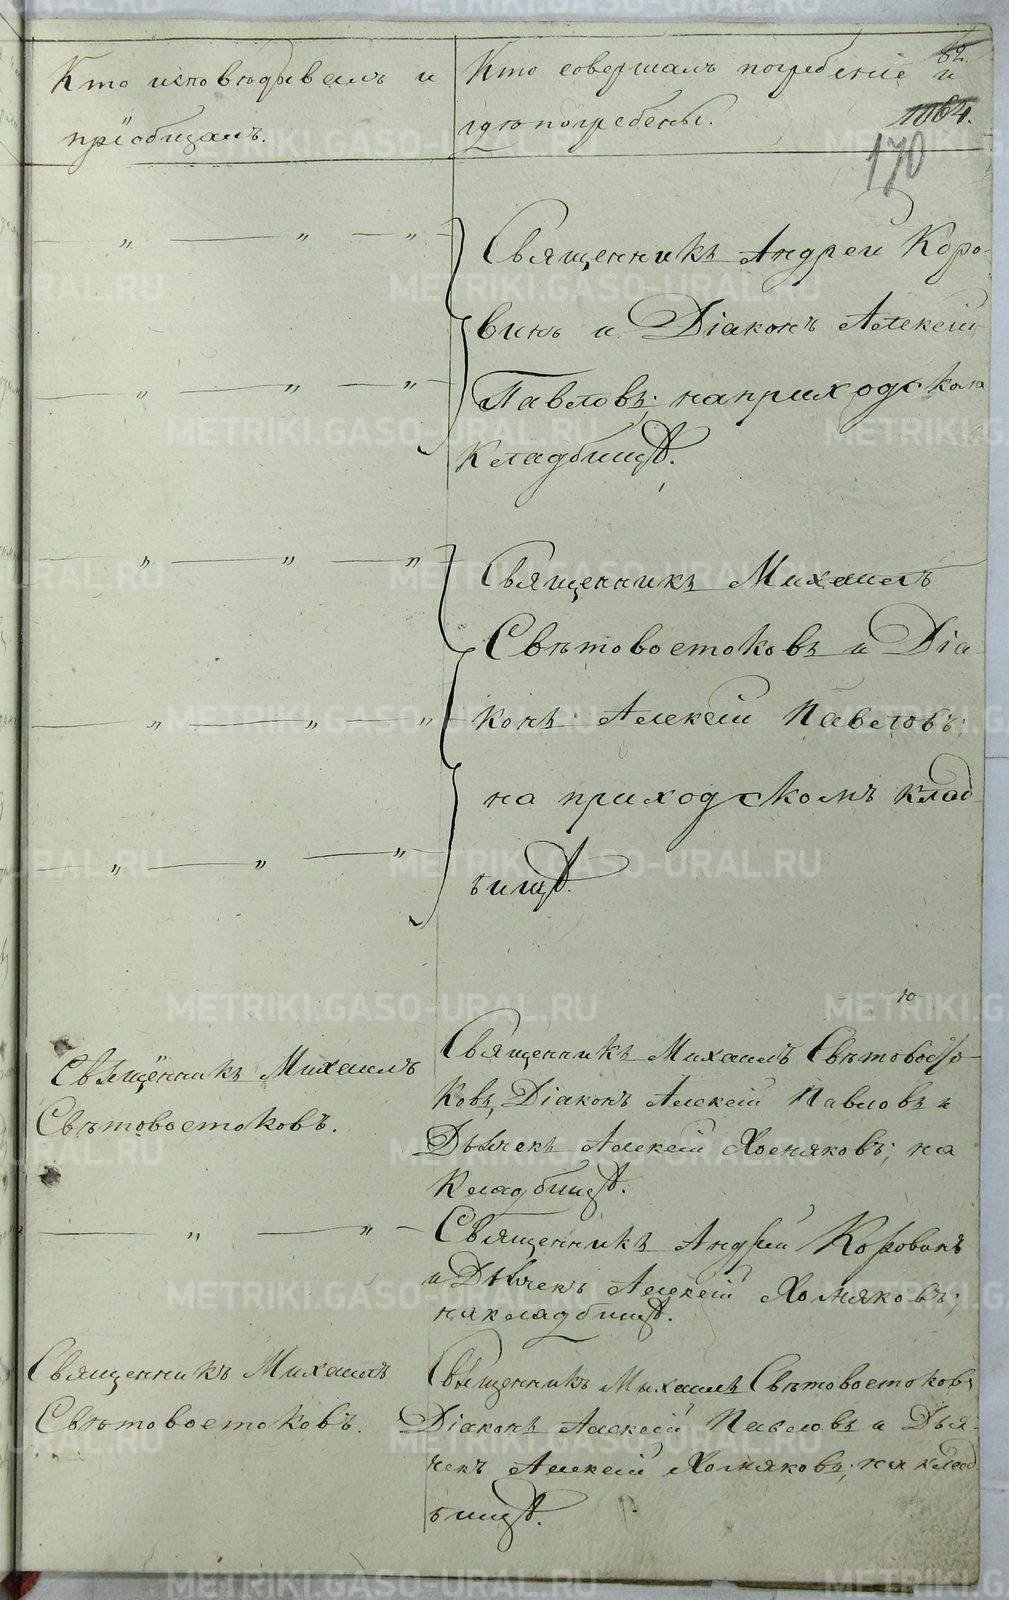 Кто исповѣдывалъ и
пріобщалъ.
Кто совершалъ погребеніе и
гдѣ погребены.
82.
1064.
170
Священникъ Андрей Коро-
винъ и Діаконъ Алексѣй
Павловъ; на приходском
Кладбищѣ.
Священникъ Михаилъ
Свѣтовостоковъ и Діа-
конъ Алексѣй Павловъ;
на приходскомъ клад-
бищѣ.
Священникъ Михаилъ
Свѣтовостоковъ.
Священникъ Михаилъ Свѣтовосто-
ковъ, Діаконъ Алексѣй Павловъ и
Дьячекъ Алексѣй Хомяковъ; на
Кладбищѣ.
Священникъ Андрей Коровинъ
и Дьячекъ Алексѣй Хомяковъ;
на кладбищѣ.
Священникъ Михаилъ
Свѣтовостоковъ.
Священникъ Михаилъ Свѣтовостоковъ
Діаконъ Алексѣй Павловъ и Дья-
чекъ Алексѣй Хомяковъ; на клад
бищѣ.
METRIKI.GASO-URAL.RU